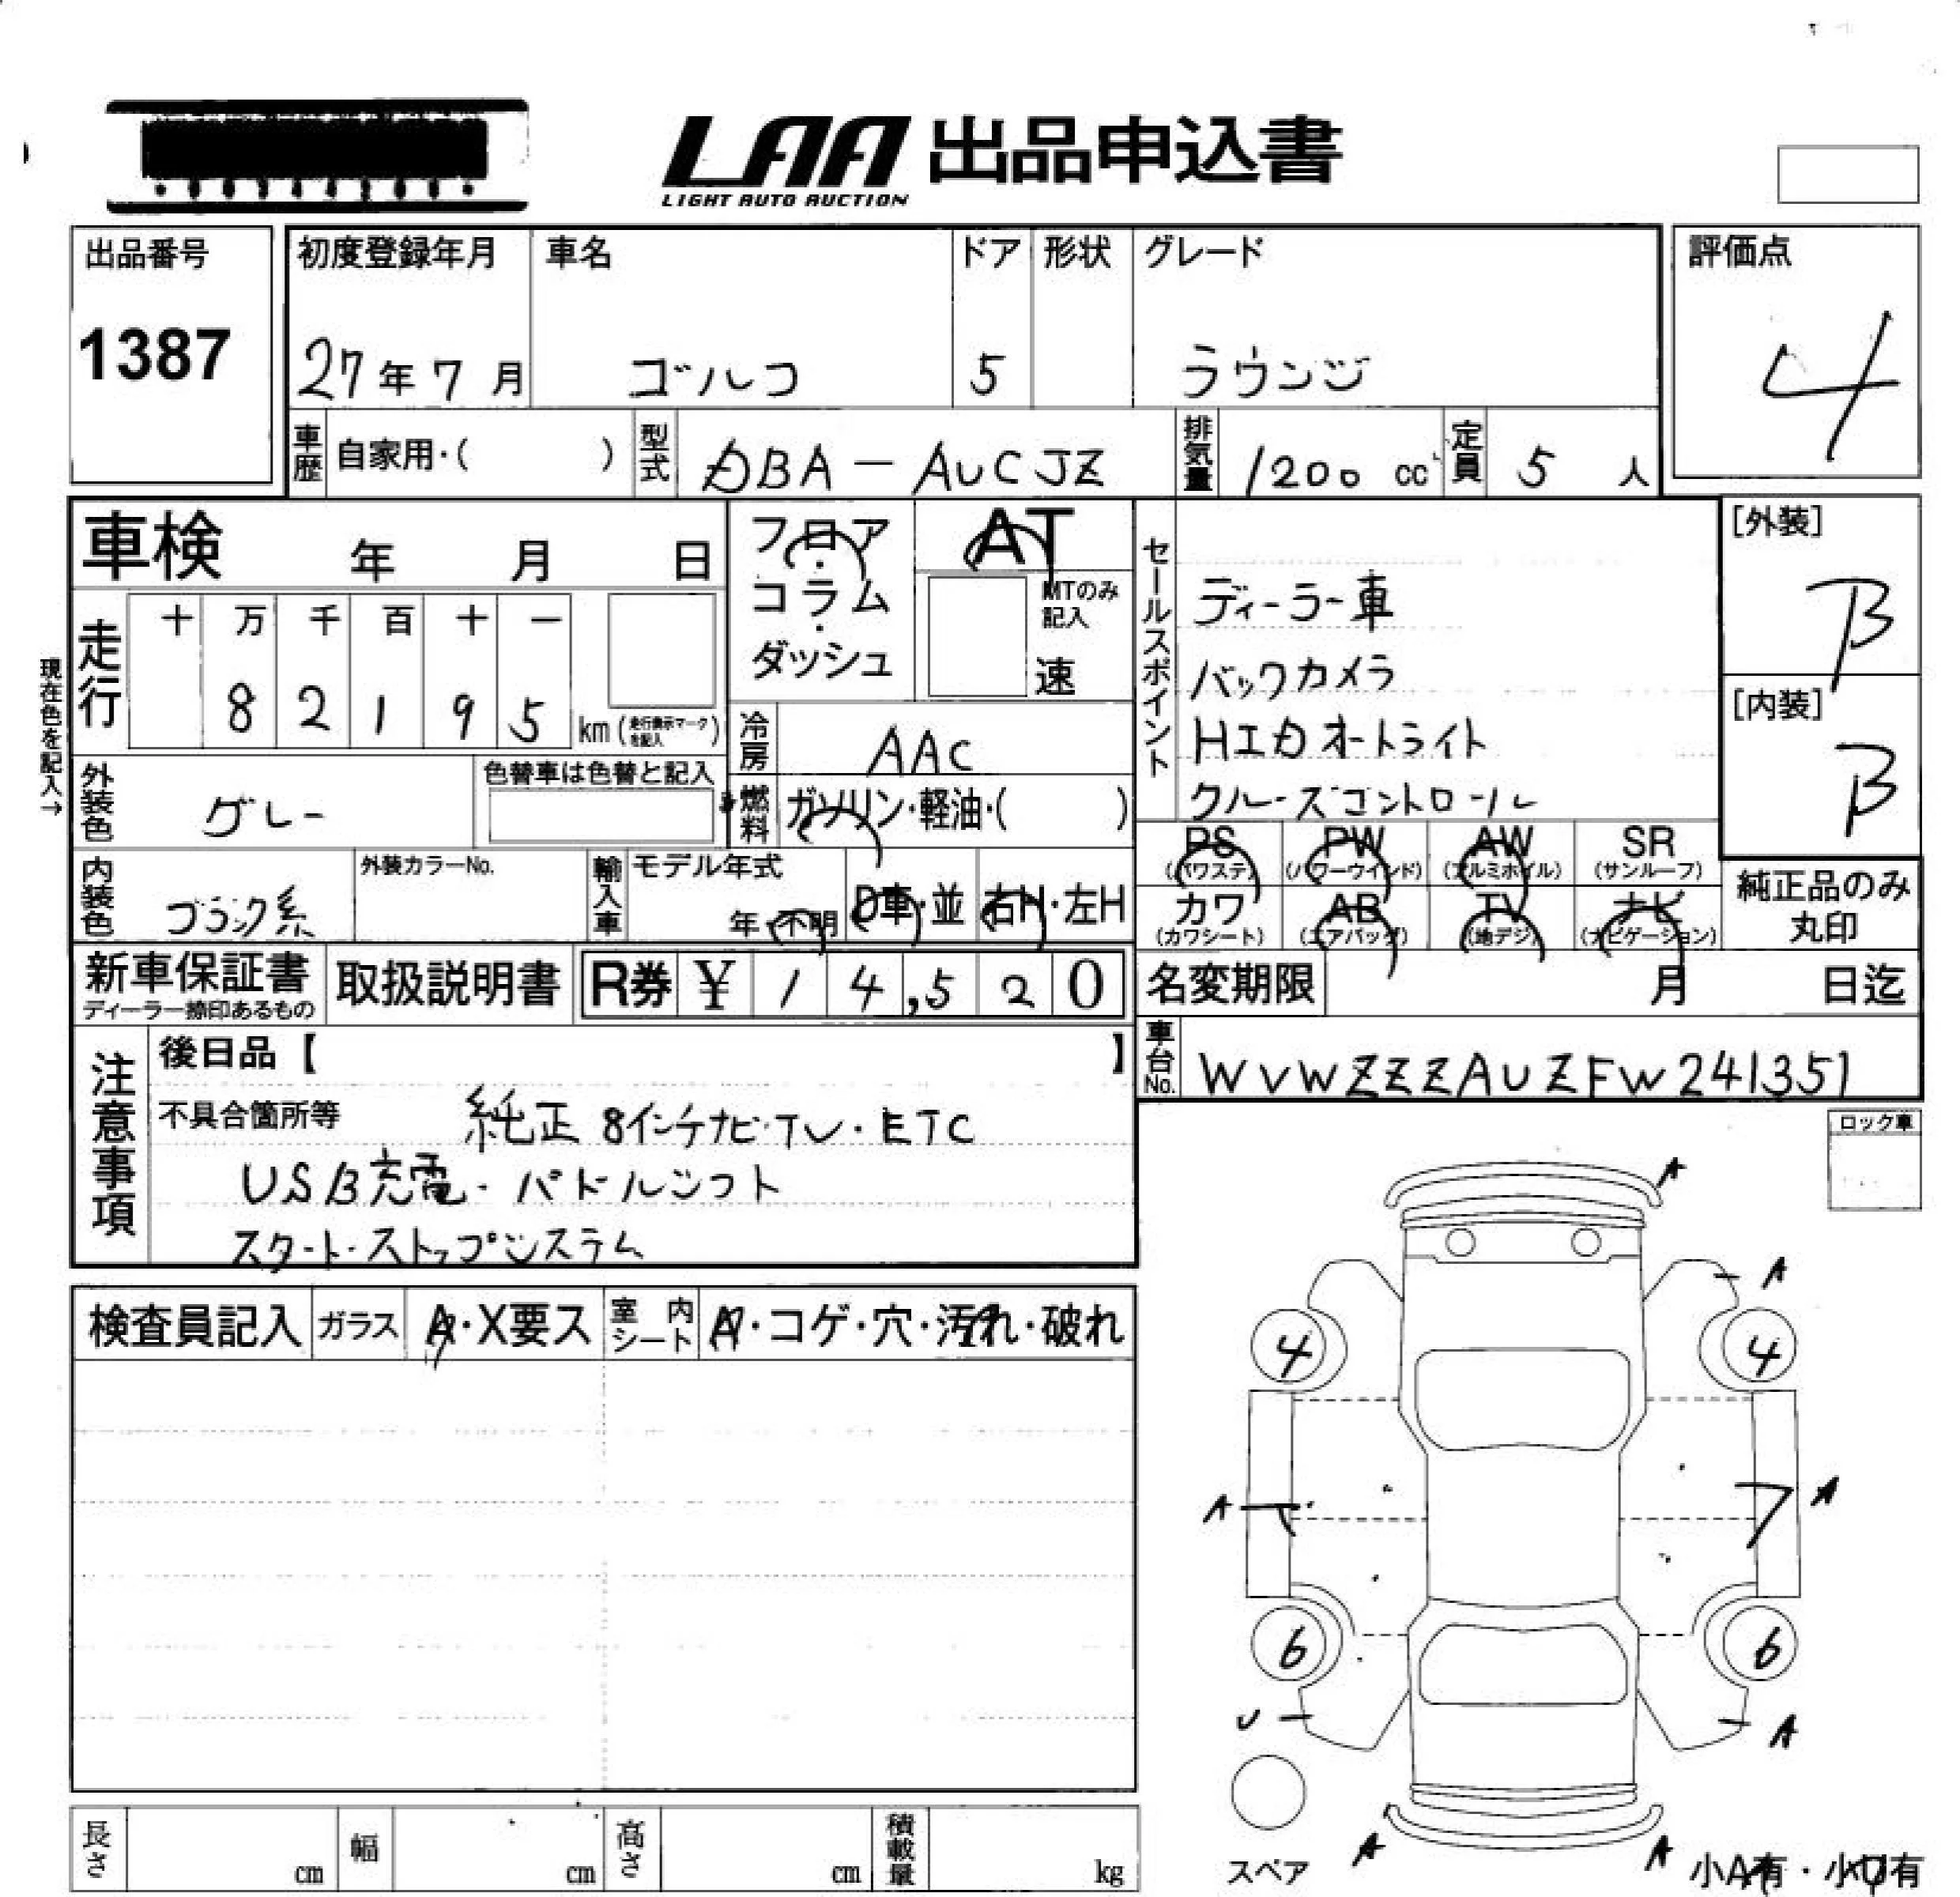 LAA 出品申込書
LIGHT AUTO AUCTION
出品番号
1387
初度登録年月
27年 7月
車名
ゴルフ
ドア
5
形状
グレード
ラウンジ
評価点
4
車歴 自家用・( )
型式 DBA-AUCJZ
排気量 1200 cc
定員 5 人
車検 年 月 日
フロア・コラム・ダッシュ
AT
MTのみ記入
速
セールスポイント
ディーラー車
バックカメラ
HID オートライト
クルーズコントロール
[外装]
B
[内装]
B
現在色を記入→
走行 十 万 千 百 十 一
8 2 1 9 5 km (走行表示マークを記入)
冷房 AAC
外装色 グレー
色替車は色替と記入
燃料 ガソリン・軽油・( )
PS (パワステ) PW (パワーウインド) AW (アルミホイル) SR (サンルーフ)
カワ (カワシート) AB (エアバッグ) TV (地デジ) ナビ (ナビゲーション)
純正品のみ丸印
内装色 ブラック系
外装カラーNo.
輸入車 モデル年式 年・不明 D車・並 右H・左H
新車保証書
ディーラー捺印あるもの
取扱説明書
R券 ¥ 1 4,5 2 0
名変期限 月 日迄
車台No. WVWZZZAUZFW241351
注意事項
後日品【 】
不具合箇所等 純正 8インチナビ・TV・ETC
USB充電・パドルシフト
スタート・ストップシステム
ロック車
検査員記入 ガラス A・X要ス 室内シート A・コゲ・穴・汚れ・破れ
A
A
4 4
A A
6 6
U A
A A
スペア
小A有・小U有
長さ cm 幅 cm 高さ cm 積載量 kg